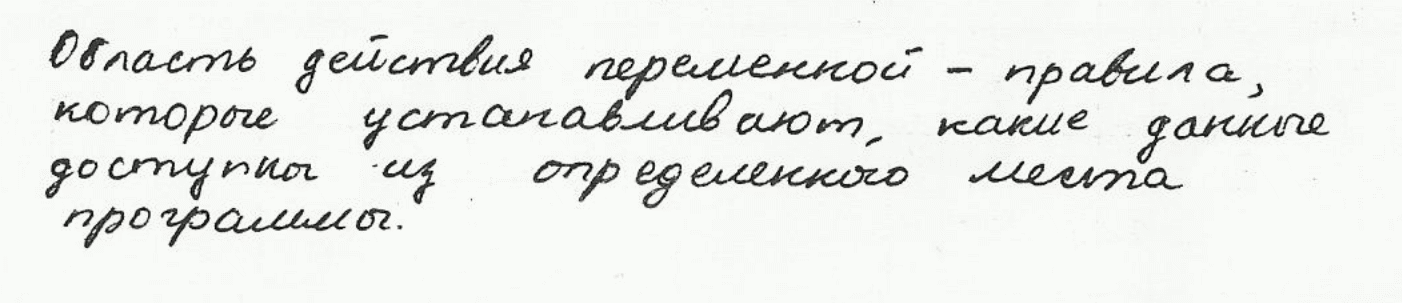 Область действия переменной – правила,
которые устанавливают, какие данные
доступны из определенного места
программы.